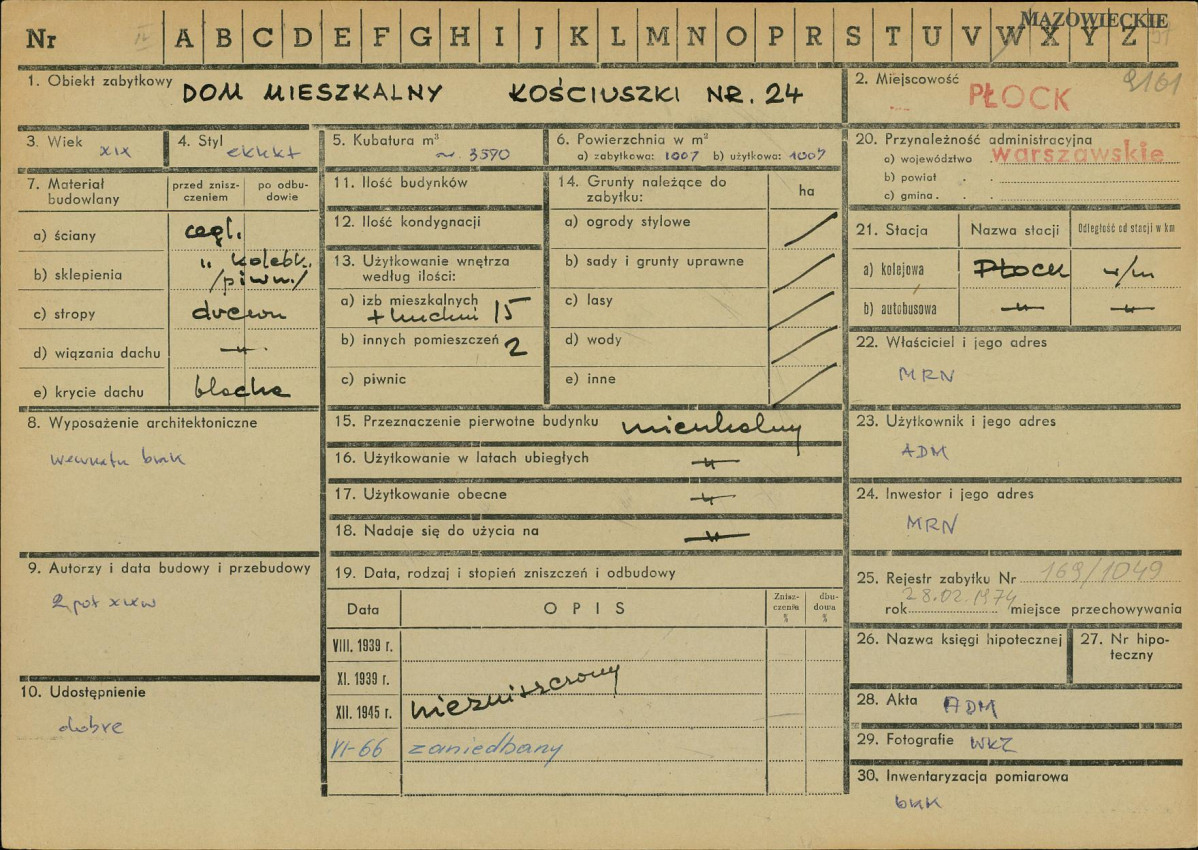 MAZOWIECKIE
Nr IV A B C D E F G H I J K L M N O P R S T U V W X Y Z
1. Obiekt zabytkowy DOM MIESZKALNY KOŚCIUSZKI NR. 24
2. Miejscowość 2161
PŁOCK
3. Wiek XIX
4. Styl eklekt
5. Kubatura m³
~ 3590
6. Powierzchnia w m²
a) zabytkowa: 1007 b) użytkowa: 1007
20. Przynależność administracyjna
a) województwo warszawskie
b) powiat
c) gmina
7. Materiał budowlany
przed znisz-
czeniem
po odbu-
dowie
a) ściany cegł.
b) sklepienia " kolebk.
/piwn./
c) stropy drewn
d) wiązania dachu —"—
e) krycie dachu blacha
11. Ilość budynków
12. Ilość kondygnacji
13. Użytkowanie wnętrza
według ilości:
a) izb mieszkalnych
+ kuchni 15
b) innych pomieszczeń 2
c) piwnic
14. Grunty należące do
zabytku:
ha
a) ogrody stylowe
b) sady i grunty uprawne
c) lasy
d) wody
e) inne
21. Stacja Nazwa stacji Odległość od stacji w km
a) kolejowa Płock w/m
b) autobusowa —"— —"—
22. Właściciel i jego adres
MRN
8. Wyposażenie architektoniczne
wewnątrz brak
15. Przeznaczenie pierwotne budynku mieszkalny
16. Użytkowanie w latach ubiegłych —"—
17. Użytkowanie obecne —"—
18. Nadaje się do użycia na —"—
23. Użytkownik i jego adres
ADM
24. Inwestor i jego adres
MRN
9. Autorzy i data budowy i przebudowy
2 poł XIX w
19. Data, rodzaj i stopień zniszczeń i odbudowy
Data OPIS
Znisz-
czenia
%
dbu-
dowa
%
VIII. 1939 r.
XI. 1939 r.
XII. 1945 r. niezniszczony
VI-66 zaniedbany
25. Rejestr zabytku Nr 169/1049
rok 28.02.1974 miejsce przechowywania
26. Nazwa księgi hipotecznej
27. Nr hipo-
teczny
10. Udostępnienie
dobre
28. Akta ADM
29. Fotografie WKZ
30. Inwentaryzacja pomiarowa
brak